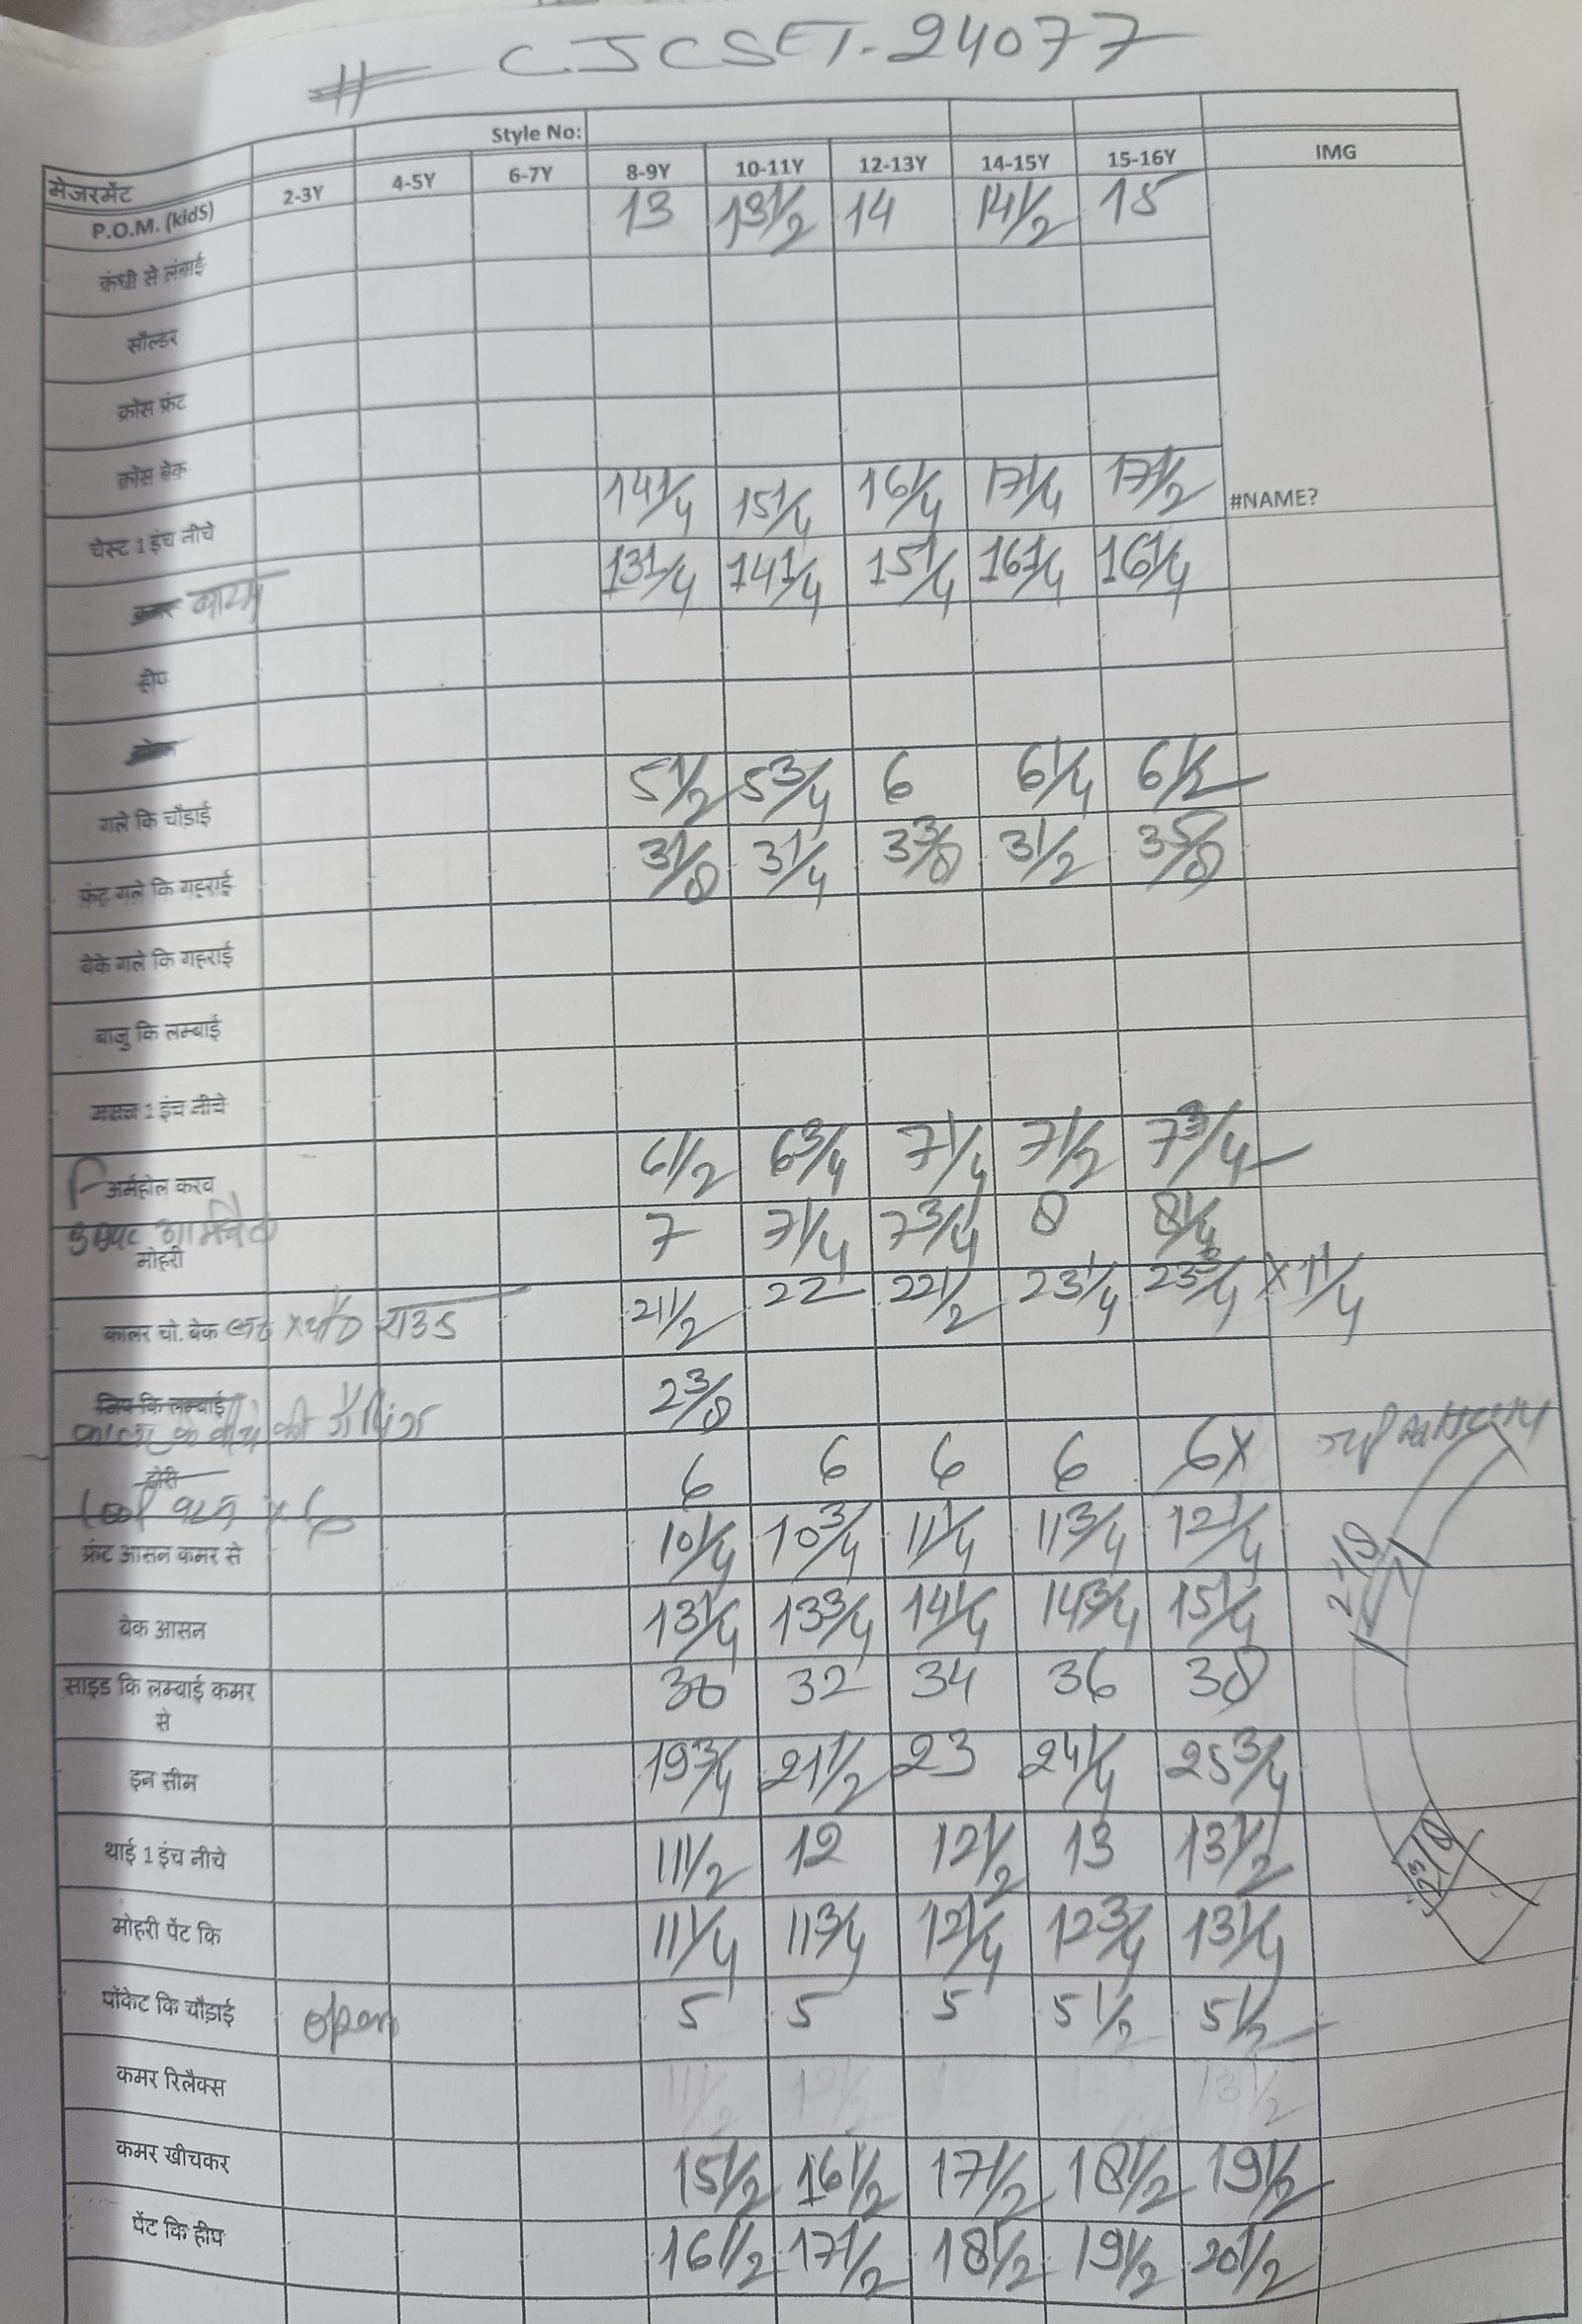 # CJCSET-24077
Style No:
मेजरमेंट IMG
P.O.M. (kids) 2-3Y 4-5Y 6-7Y 8-9Y 10-11Y 12-13Y 14-15Y 15-16Y
कंधी से लंबाई 13 13 1/2 14 14 1/2 15
सौल्डर
क्रोस फ्रंट
क्रोस बेक
चेस्ट 1 इंच नीचे 14 1/4 15 1/4 16 1/4 17 1/4 17 1/2 #NAME?
13 1/4 14 1/4 15 1/4 16 1/4 16 1/4
हीप
गले कि चौड़ाई 5 1/2 5 3/4 6 6 1/4 6 1/2
फ्रंट गले कि गहराई 3 1/8 3 1/4 3 3/8 3 1/2 3 5/8
बेके गले कि गहराई
बाजु कि लम्बाई
मसल 1 इंच नीचे
अर्महोल करव 6 1/2 6 3/4 7 1/4 7 1/2 7 3/4
मोहरी 7 7 1/4 7 3/4 8 8 1/4
कालर चो. बेक राउंड 21 1/2 22 22 1/2 23 1/4 23 3/4 x 1 1/4
जिप कि लम्बाई 2 3/8
डोरी 6 6 6 6 6x
फ्रंट आसन कमर से 10 1/4 10 3/4 11 1/4 11 3/4 12 1/4
2 7/8
बेक आसन 13 1/4 13 3/4 14 1/4 14 3/4 15 1/4
साइड कि लम्बाई कमर से 30 32 34 36 38
इन सीम 19 3/4 21 1/2 23 24 1/4 25 3/4
थाई 1 इंच नीचे 11 1/2 12 12 1/2 13 13 1/2
2 3/8
मोहरी पेंट कि 11 1/4 11 3/4 12 1/4 12 3/4 13 1/4
पॉकेट कि चौड़ाई open 5 5 5 5 1/2 5 1/2
कमर रिलैक्स
कमर खीचकर 15 1/2 16 1/2 17 1/2 18 1/2 19 1/2
पेंट कि हीप 16 1/2 17 1/2 18 1/2 19 1/2 20 1/2